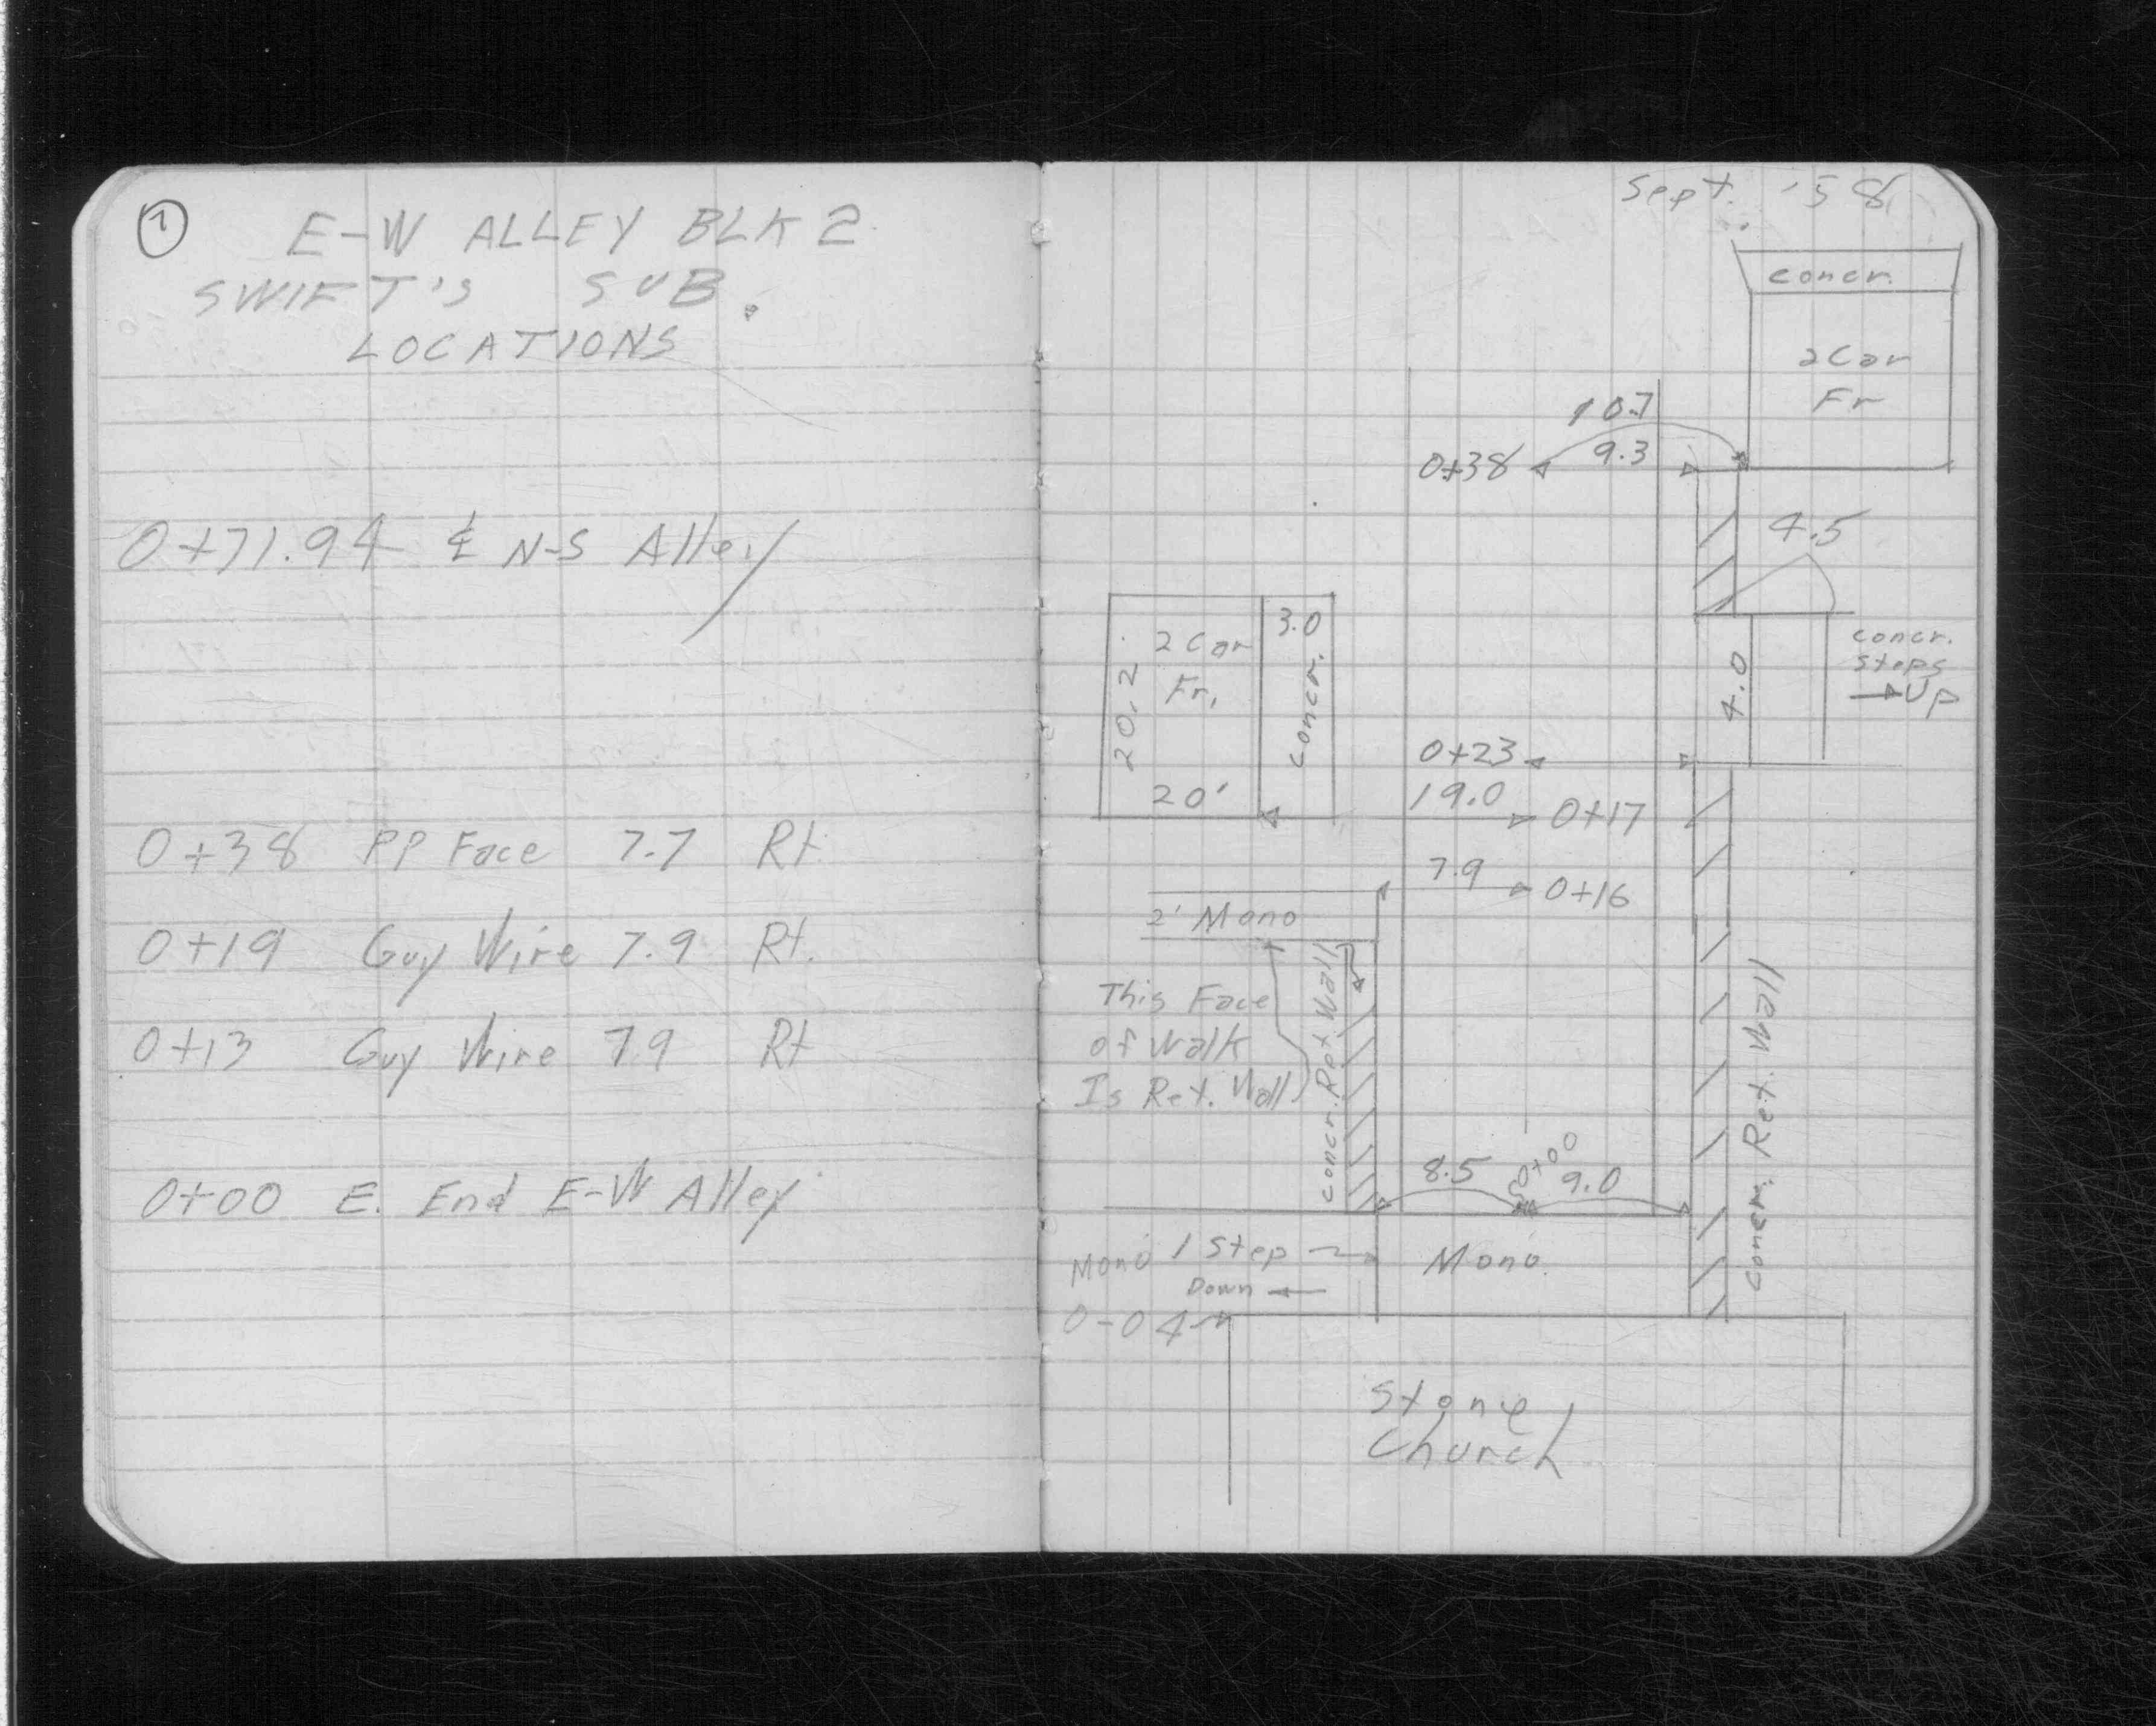 1
E-W ALLEY BLK 2
SWIFT'S SUB.
LOCATIONS
0+71.94 ℄ N-S Alley
0+38 PP Face 7.7 Rt
0+19 Guy Wire 7.9 Rt.
0+13 Guy Wire 7.9 Rt
0+00 E. End E-W Alley
Sept. '58
concr.
2 Car
Fr
10.7
0+38 9.3
4.5
concr.
steps
Up
4.0
2 Car
Fr.
20.2
20'
3.0
concr.
0+23
19.0 0+17
7.9 0+16
2' Mono
This Face
of Walk
Is Ret. Wall
concr. Ret Wall
concr. Ret. Wall
8.5 0+00 9.0
Mono 1 Step
Down
Mono.
0-04
Stone
Church